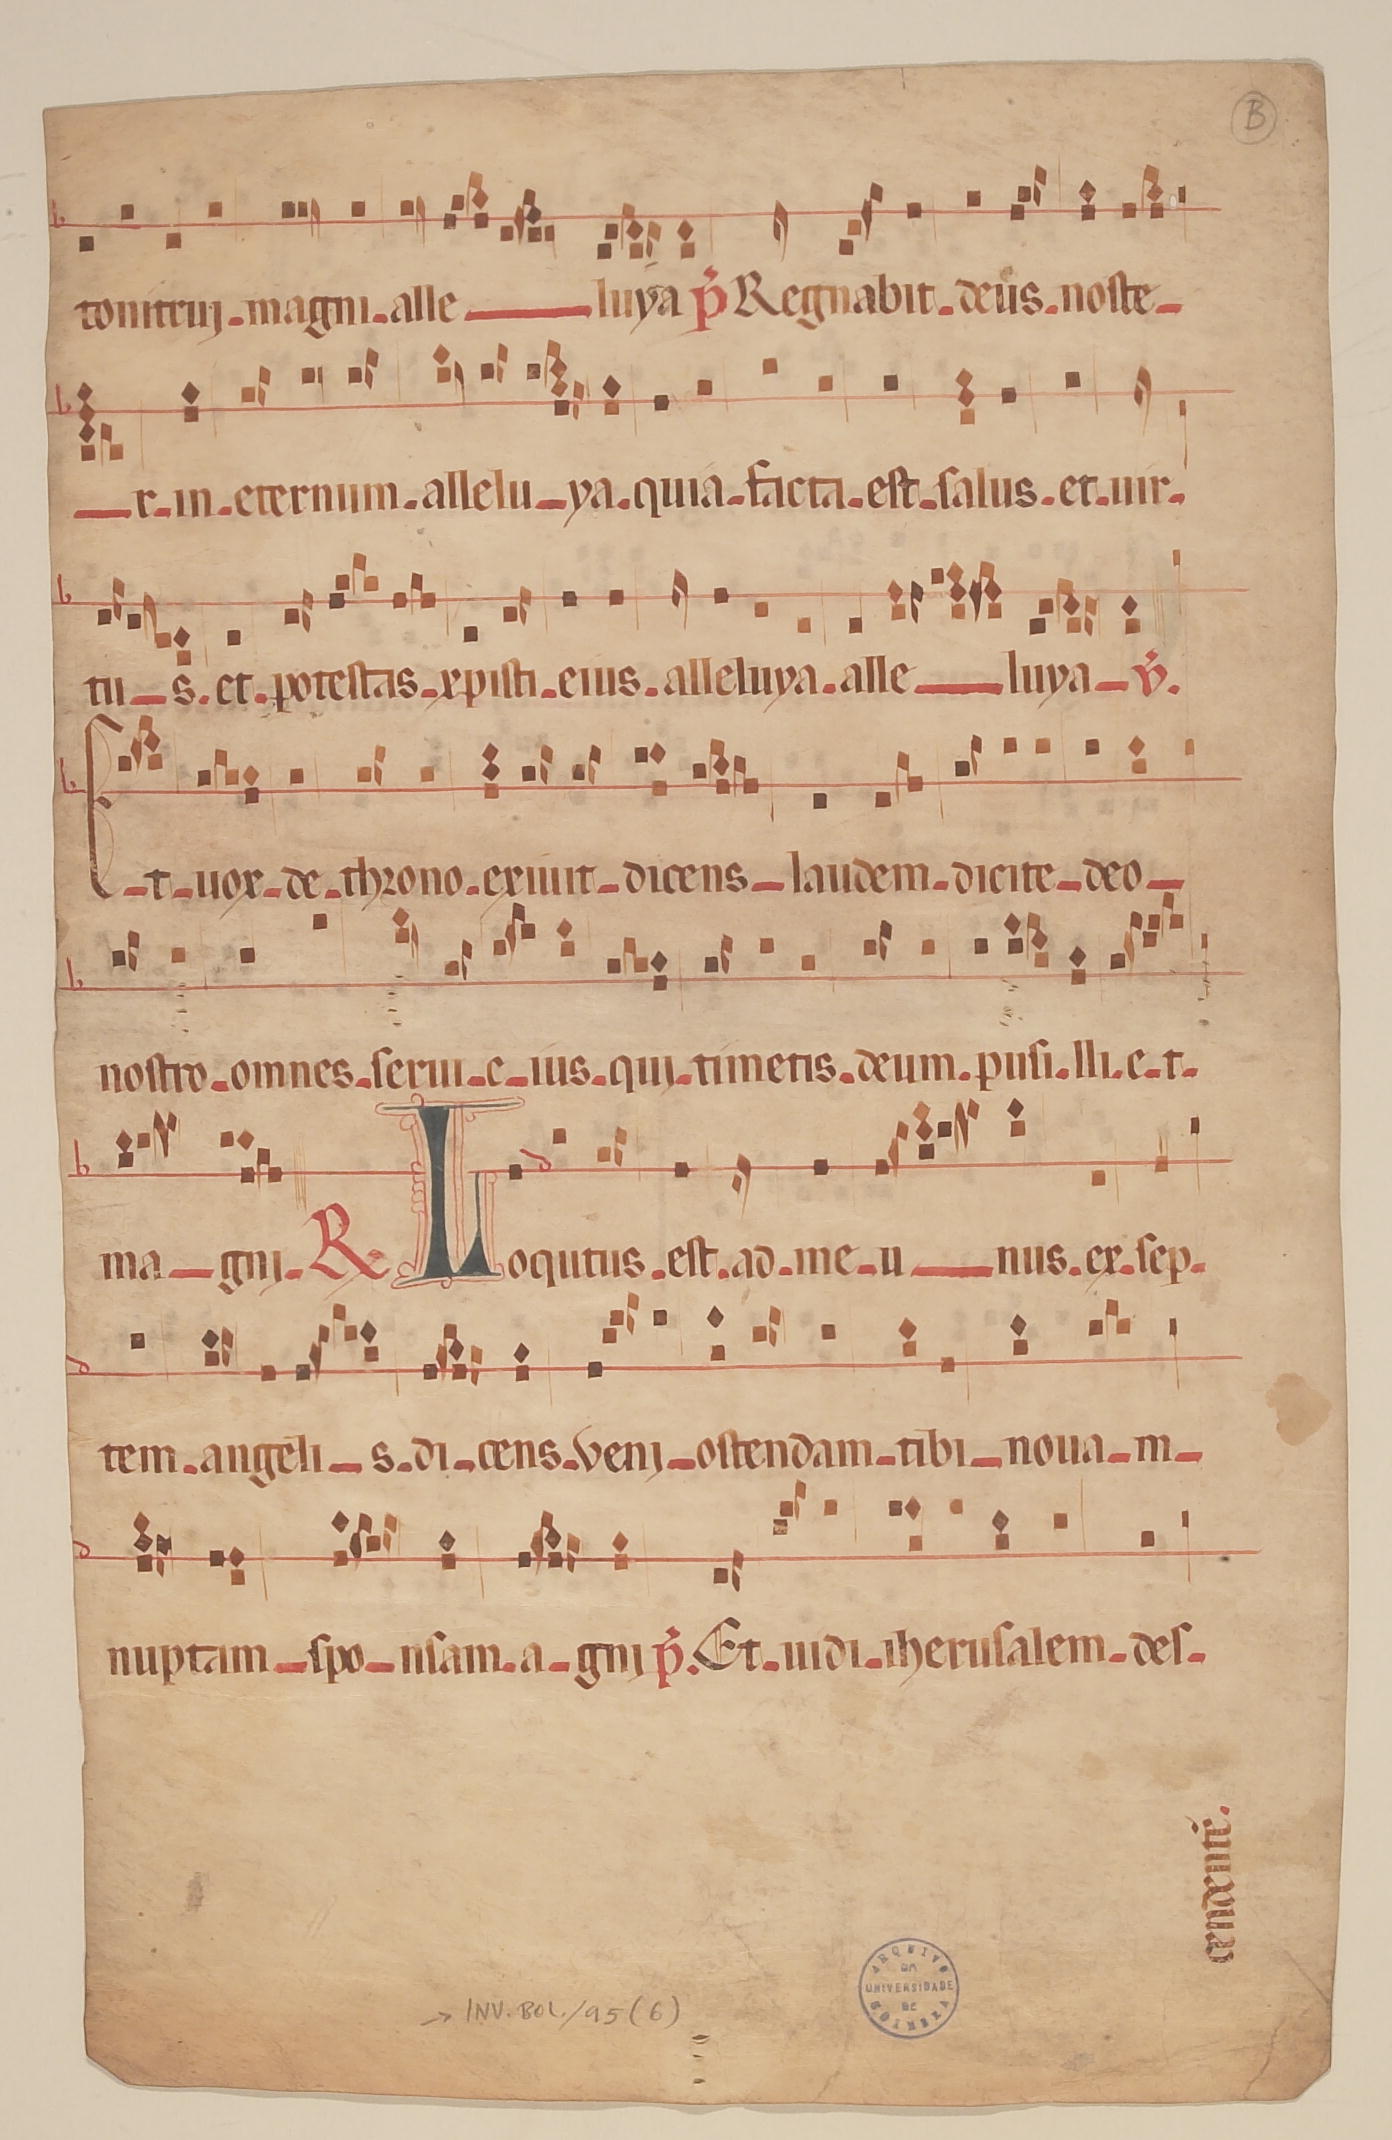 B
tonitruj magni alle luya p̃ Regnabit deus noste
r in eternum alleluya quia facta est salus et uir
tus et potestas xpisti eius alleluya alle luya v̉.
Et uox de throno exiuit dicens laudem dicite deo
nostro omnes serui eius quj timetis deum pusilli et
magnj. R Loqutus est ad me unus ex sep
tem angelis dicens venj ostendam tibi nouam
nuptam sponsam agnj p̃. Et uidi iherusalem des
cendente.
ARQUIVO DA UNIVERSIDADE DE COIMBRA
→ INV. BOL./95(6)